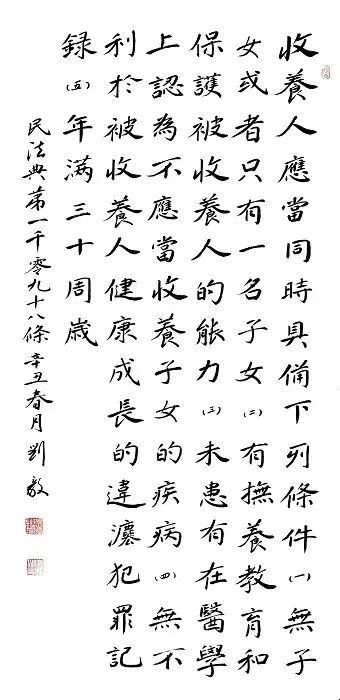 收養人應當同時具備下列條件（一）無子
女或者只有一名子女（二）有撫養教育和
保護被收養人的能力（三）未患有在醫學
上認為不應當收養子女的疾病（四）無不
利於被收養人健康成長的違灋犯罪記
録（五）年滿三十周歲
民法典第一千零九十八條辛丑春月劉